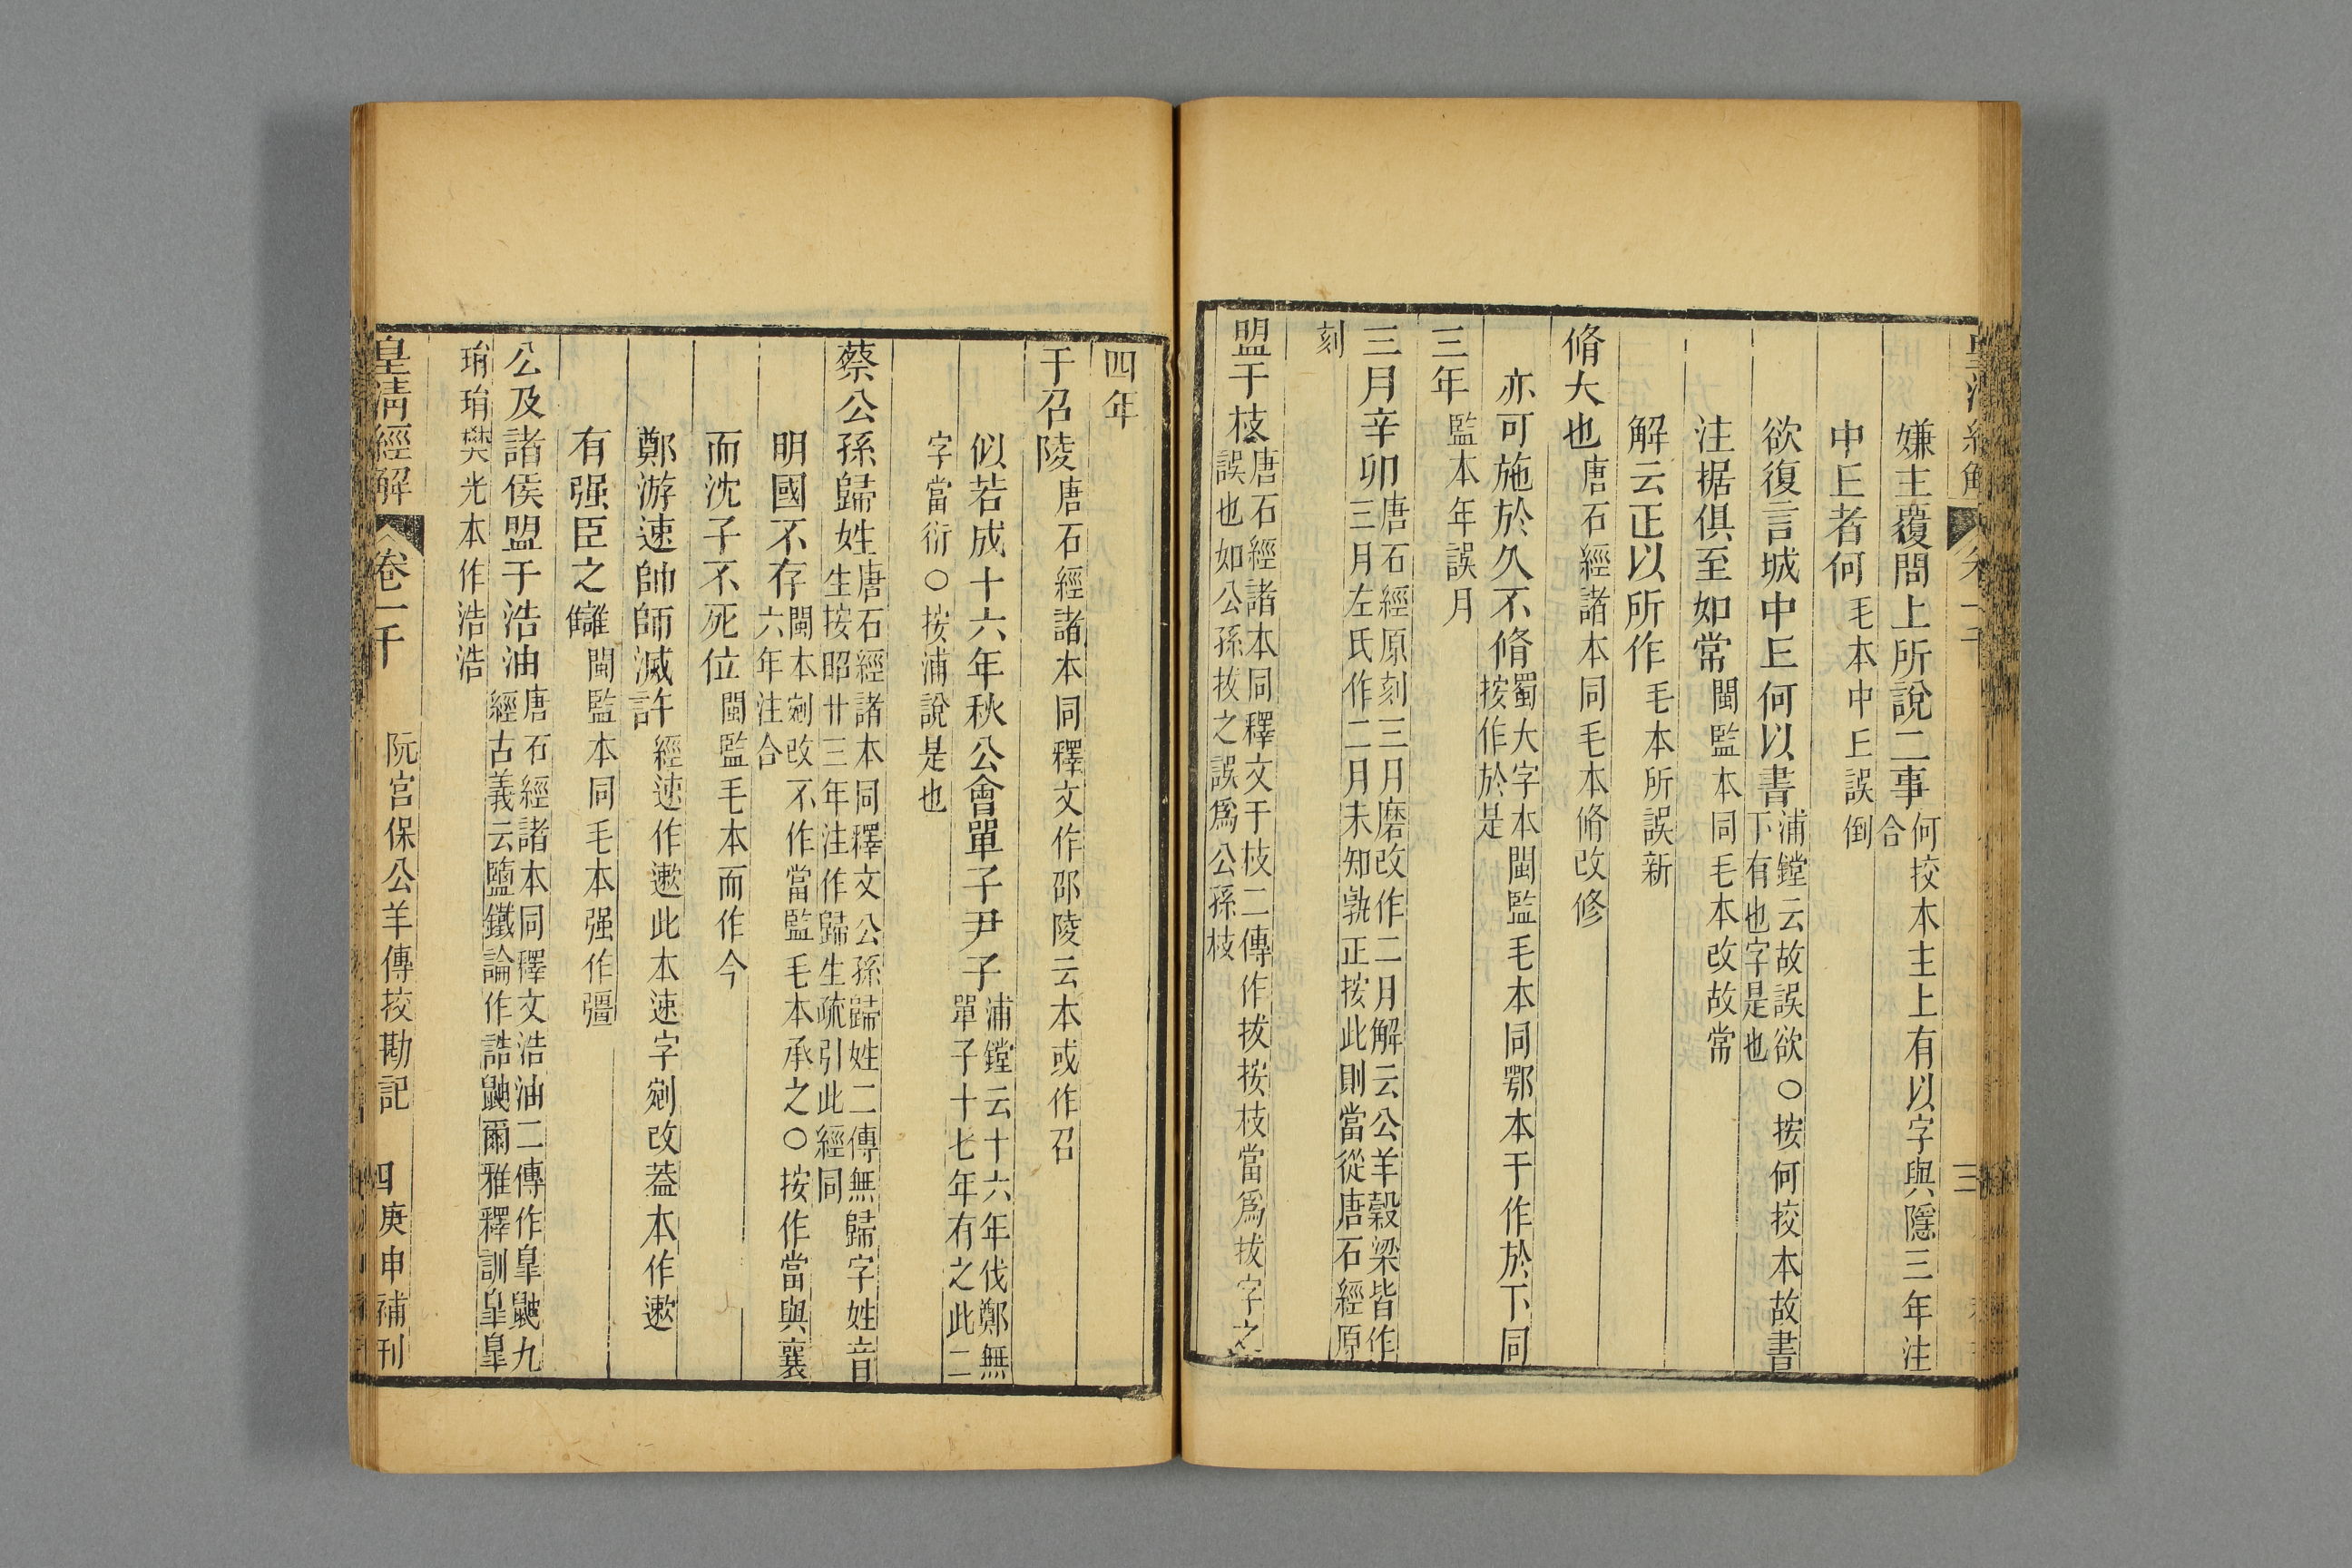 嫌主覆問上所說二事何挍本主上有以字與隱三年注合
中㠪者何毛本中㠪誤倒
欲復言城中㠪何以書浦鏜云故誤欲○按何挍本故書下有也字是也
注据俱至如常閩監本同毛本改故常
解云正以所作毛本所誤新
脩大也唐石經諸本同毛本脩改修
亦可施於久不脩蜀大字本閩監毛本同鄂本于作於下同按作於是
三年監本年誤月
三月辛卯唐石經原刻三月磨改作二月解云公羊穀梁皆作三月左氏作二月未知孰正按此則當從唐石經原
刻
盟于枝唐石經諸本同釋文于枝二傳作拔按枝當爲拔字之誤也如公孫拔之誤爲公孫枝
四年
于召陵唐石經諸本同釋文作邵陵云本或作召
似若成十六年秋公會單子尹子浦鏜云十六年伐鄭無單子十七年有之此二
字當衍○按浦說是也
蔡公孫歸姓唐石經諸本同釋文公孫歸姓二傳無歸字姓音生按昭廿三年注作歸生疏引此經同
明國不存閩本剜改不作當監毛本承之○按作當與襄六年注合
而沈子不死位閩監毛本而作今
鄭游速帥師滅許經速作遬此本速字剜改葢本作遬
有强臣之讎閩監本同毛本强作彊
公及諸侯盟于浩油唐石經諸本同釋文浩油二傳作皐鼬九經古義云鹽鐵論作誥鼬爾雅釋訓皐皐
琄琄樊光本作浩浩
皇淸經解 卷一千 阮宮保公羊傳挍勘記 四 庚申補刊